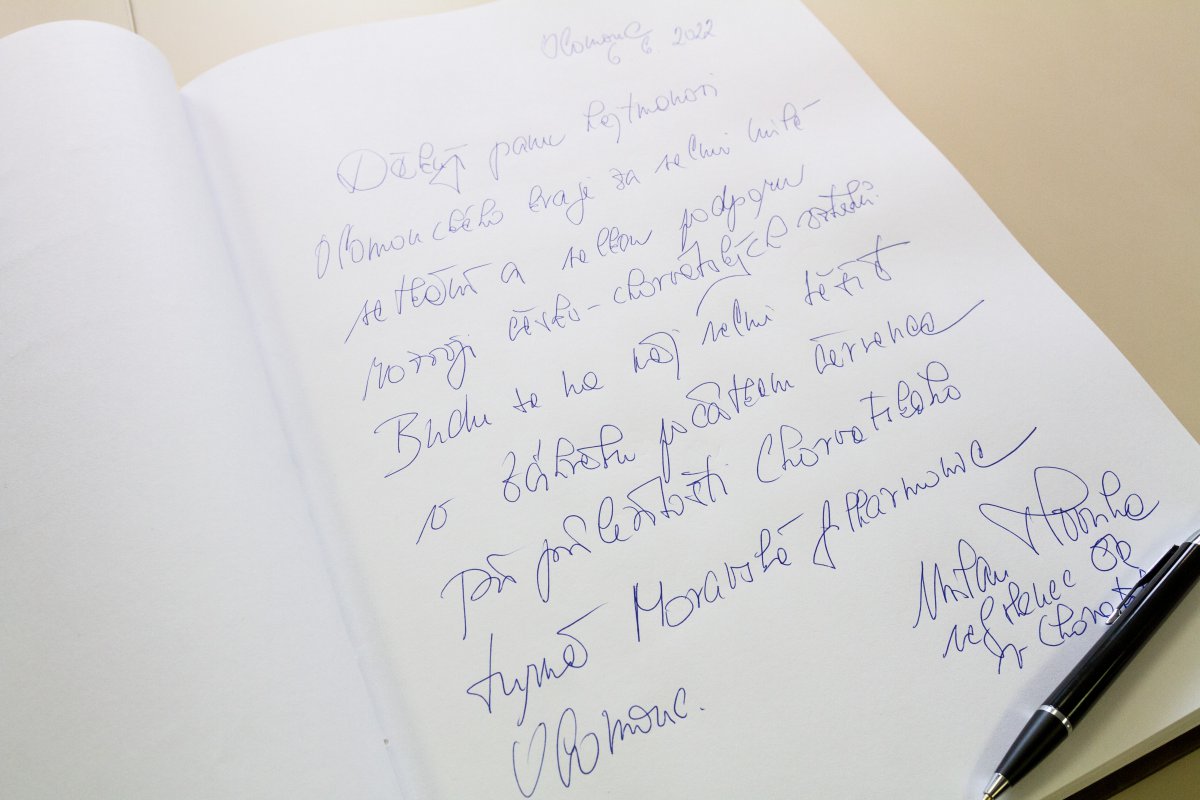 Olomouc
6. 6. 2022
Děkuji panu hejtmanovi
Olomouckého kraje za velmi milé
setkání a velkou podporu
rozvoji česko-chorvatských vztahů.
Budu se na něj velmi těšit
v Záhřebu počátkem července
při příležitosti Chorvatského
turné Moravské filharmonie
Olomouc.
Milan Hovorka
velvyslanec ČR
v Chorvat